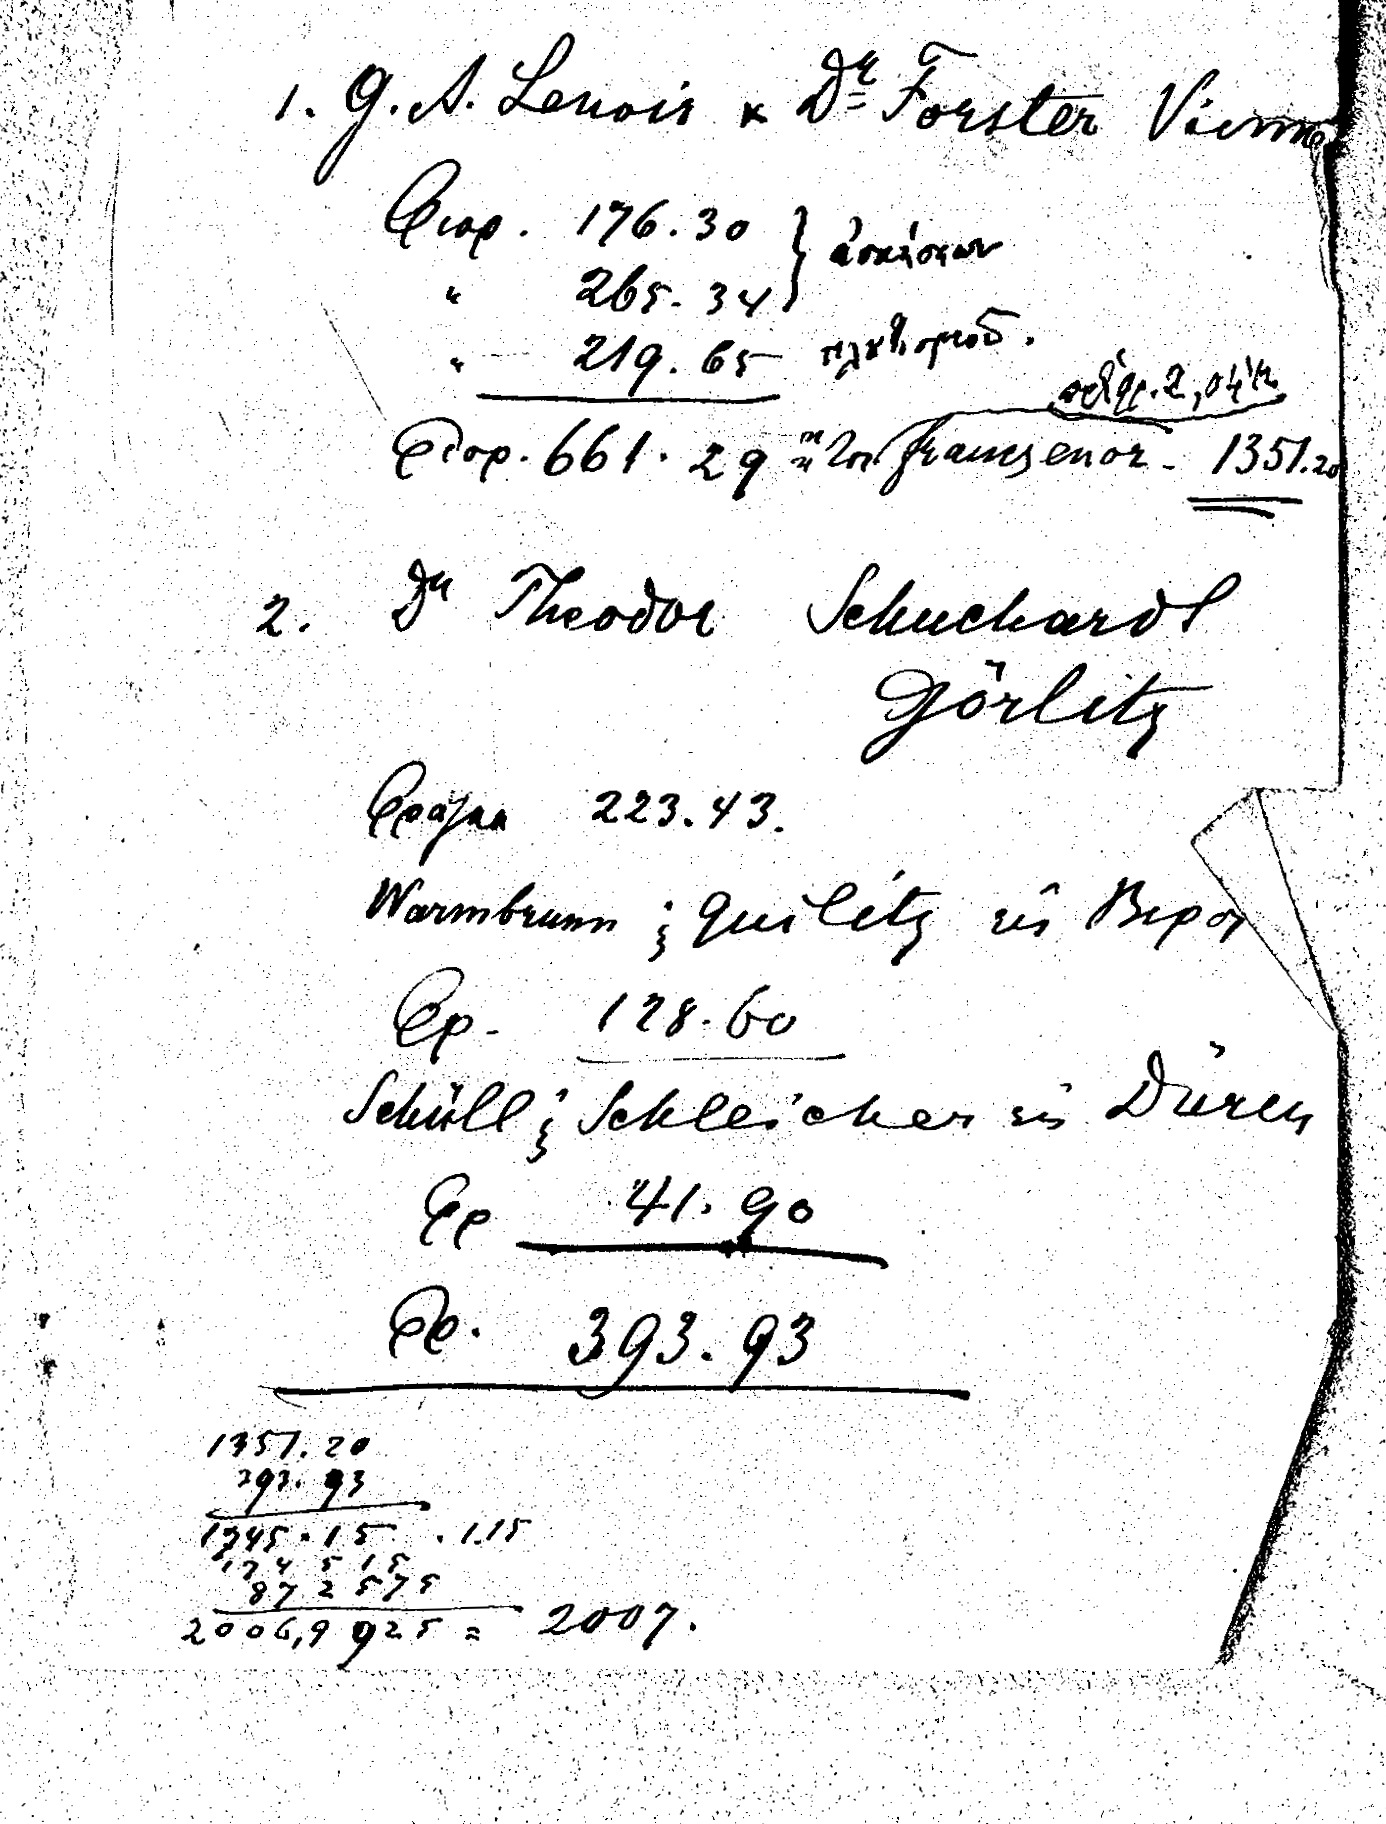 1. G. A. Lenoir κ Dr Forster Vienne
Φιορ. 176.30
" 265.34
" 219.65
πρὸς φρ. 2,04
Φιορ. 661.29 Franks 1351.20
2. Dr Theodor Schuchardt
Görlitz
Φράγκα 223.43.
Warmbrunn ; Quilitz εἰς Βερολ
Φρ. 128.60
Schüll ; Schleicher εἰς Düren
Φρ 41.90
Φρ. 393.93
1351.20
393.93
1745.15 . 1.15
174515
872575
2006,9925 = 2007.